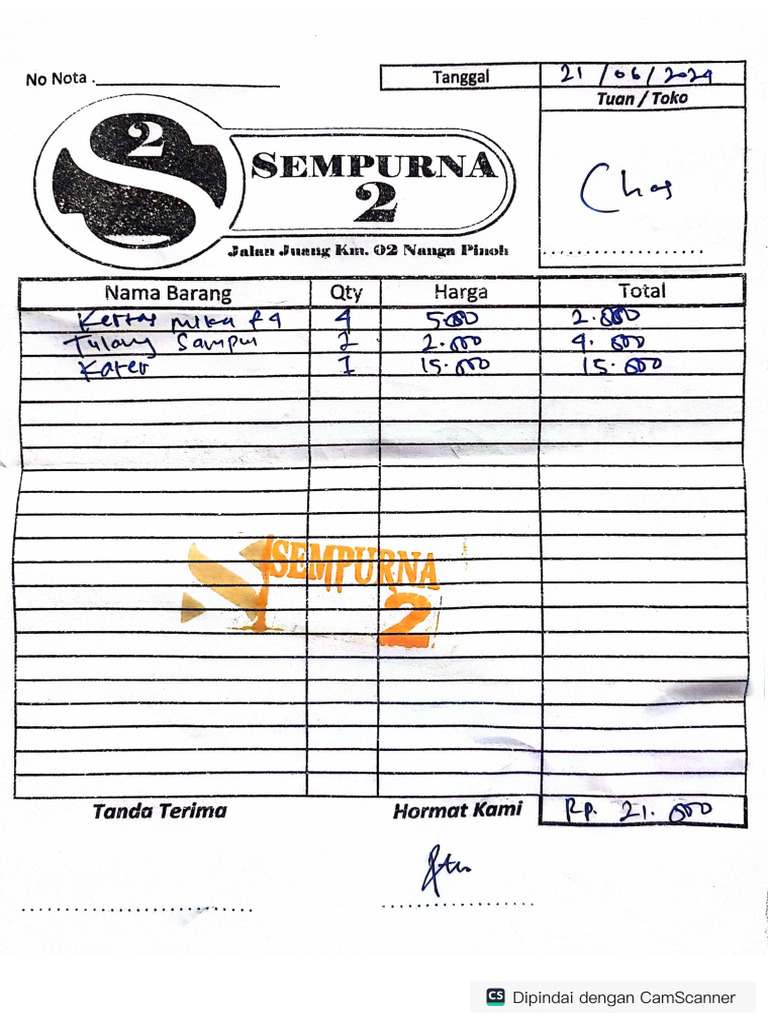 No Nota .
Tanggal 21/06/2024
Tuan / Toko
2
SEMPURNA
2
Chas
Jalan Juang Km. 02 Nanga Pinoh
Nama Barang Qty Harga Total
Kertas mika f4 4 500 2.000
Tulang Sampul 2 2.000 4.000
Kater 1 15.000 15.000
SEMPURNA
2
Tanda Terima Hormat Kami Rp. 21.000
CS Dipindai dengan CamScanner